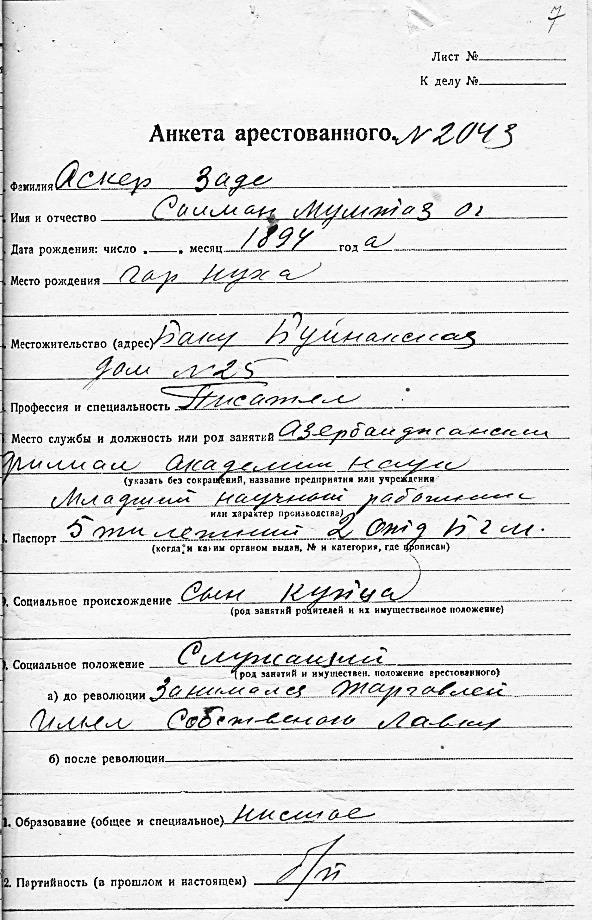 7
Лист №
К делу №
Анкета арестованного. N 2043
Фамилия Аскер Заде
Имя и отчество Салман Мумтаз ог
Дата рождения: число . — . месяц 1894 год а
Место рождения гор Нуха
Местожительство (адрес) Баку Буйнакская
дом N 25
Профессия и специальность Писател
Место службы и должность или род занятий Азербайджанский
филиал Академии Наук
(указать без сокращений, название предприятия или учреждения
Младший научный работник
или характер производства)
Паспорт 5 тилетний 2 Отд БГМ.
(когда и каким органом выдан, № и категория, где прописан)
Социальное происхождение Сын Купца
(род занятий родителей и их имущественное положение)
Социальное положение Служащий
(род занятий и имуществен. положение арестованного)
а) до революции Занимался Тарговлей
Имел Собственого Лавку
б) после революции
1. Образование (общее и специальное) Нисшое
2. Партийность (в прошлом и настоящем) б/п